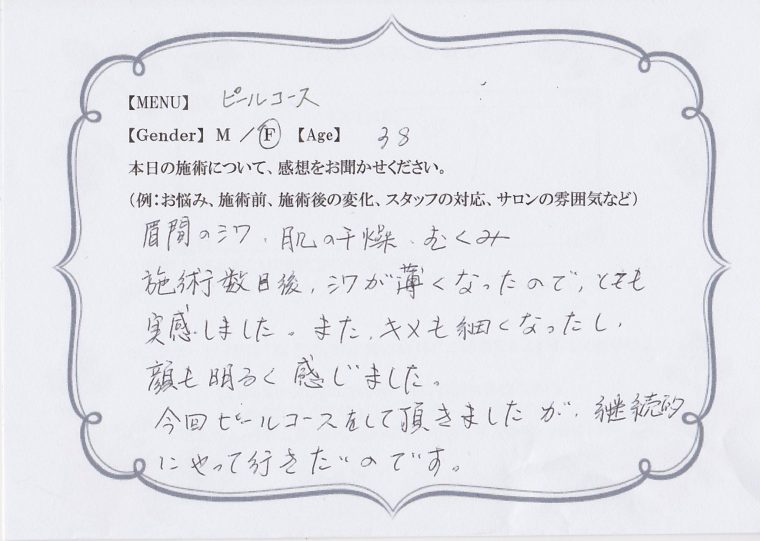 【MENU】 ピールコース
【Gender】 M / F 【Age】 38
本日の施術について、感想をお聞かせください。
（例：お悩み、施術前、施術後の変化、スタッフの対応、サロンの雰囲気など）
眉間のシワ、肌の干燥、むくみ
施術数日後、シワが薄くなったので、とても
実感しました。また、キメも細くなったし、
顔も明るく感じました。
今回ピールコースをして頂きましたが、継続的
にやって行きたいのです。